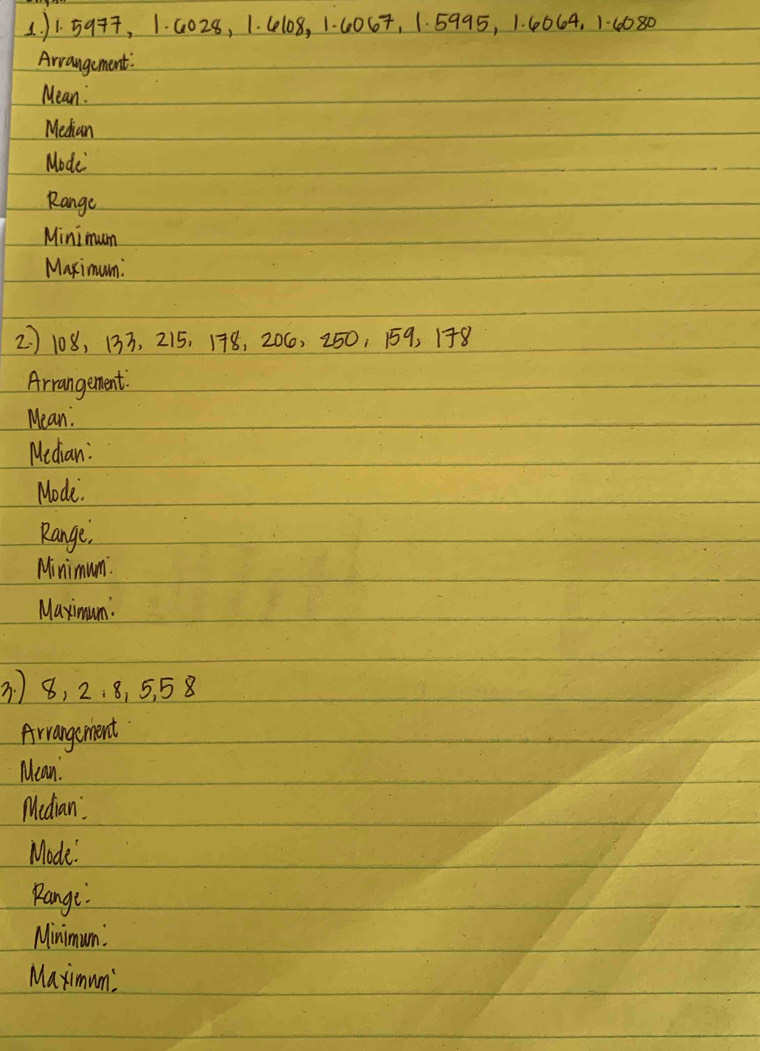 1.) 1.5977, 1.6028, 1.6108, 1.6067, 1.5995, 1.6064, 1.6080
Arrangement:
Mean:
Median
Mode:
Range
Minimum
Maximum:
2.) 108, 133, 215, 178, 206, 250, 159, 178
Arrangement:
Mean:
Median:
Mode:
Range:
Minimum:
Maximum:
3.) 8, 2, 8, 5, 5 8
Arrangement
Mean:
Median:
Mode:
Range:
Minimum:
Maximum: